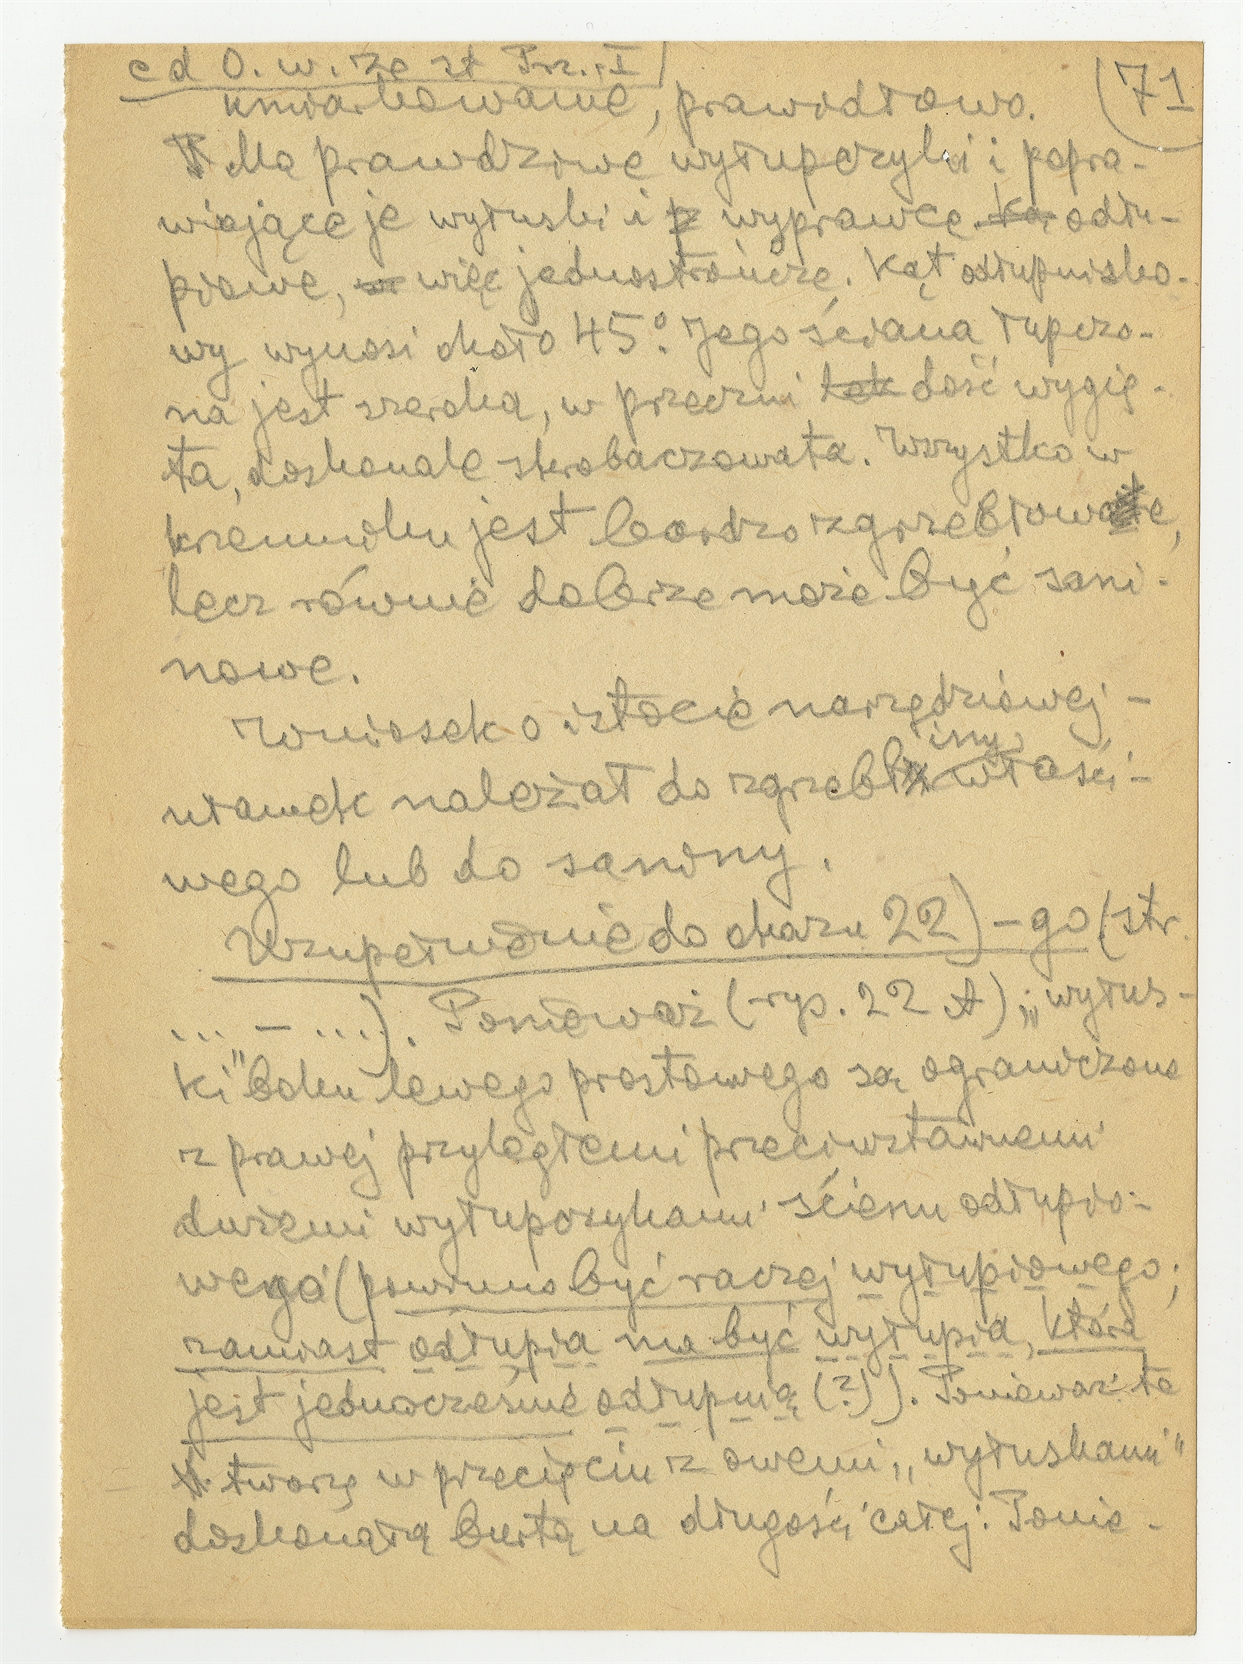 c d O. w. ze st Prz., I
(71
umiarkowanie, prawidłowo.
Ma prawdziwe wyłupczyki i popra-
wiające je wyłuski i wyprawcę odłu-
piowe, więc jednostrończe. Kąt odłupnisko-
wy wynosi około 45°. Jego ściana łupczo-
na jest szeroka, w przeczni dość wygię-
ta, doskonale skrobaczowata. Wszystko w
krzemyku jest bardzo zgrzebłowate,
lecz równie dobrze może być sani-
nowe.
Wniosek o istocie narzędziowej -
ułamek należał do zgrzebliny właści-
wego lub do saniny.
Uzupełnienie do okazu 22) - go (str.
... - ...). Ponieważ (rys. 22 A) „wyłus-
ki" boku lewego prostowego są ograniczone
z prawej przyległemi przeciwstawnemi
dużemi wyłupczykami ścienu odłupio-
wego (powinno być raczej wyłupiowego;
zamiast odłupia ma być wyłupia, która
jest jednocześnie odłupnią (?)). Ponieważ te
tworzą w przecięciu z owemi „wyłuskami"
doskonałą burtą na długości całej. Ponie-